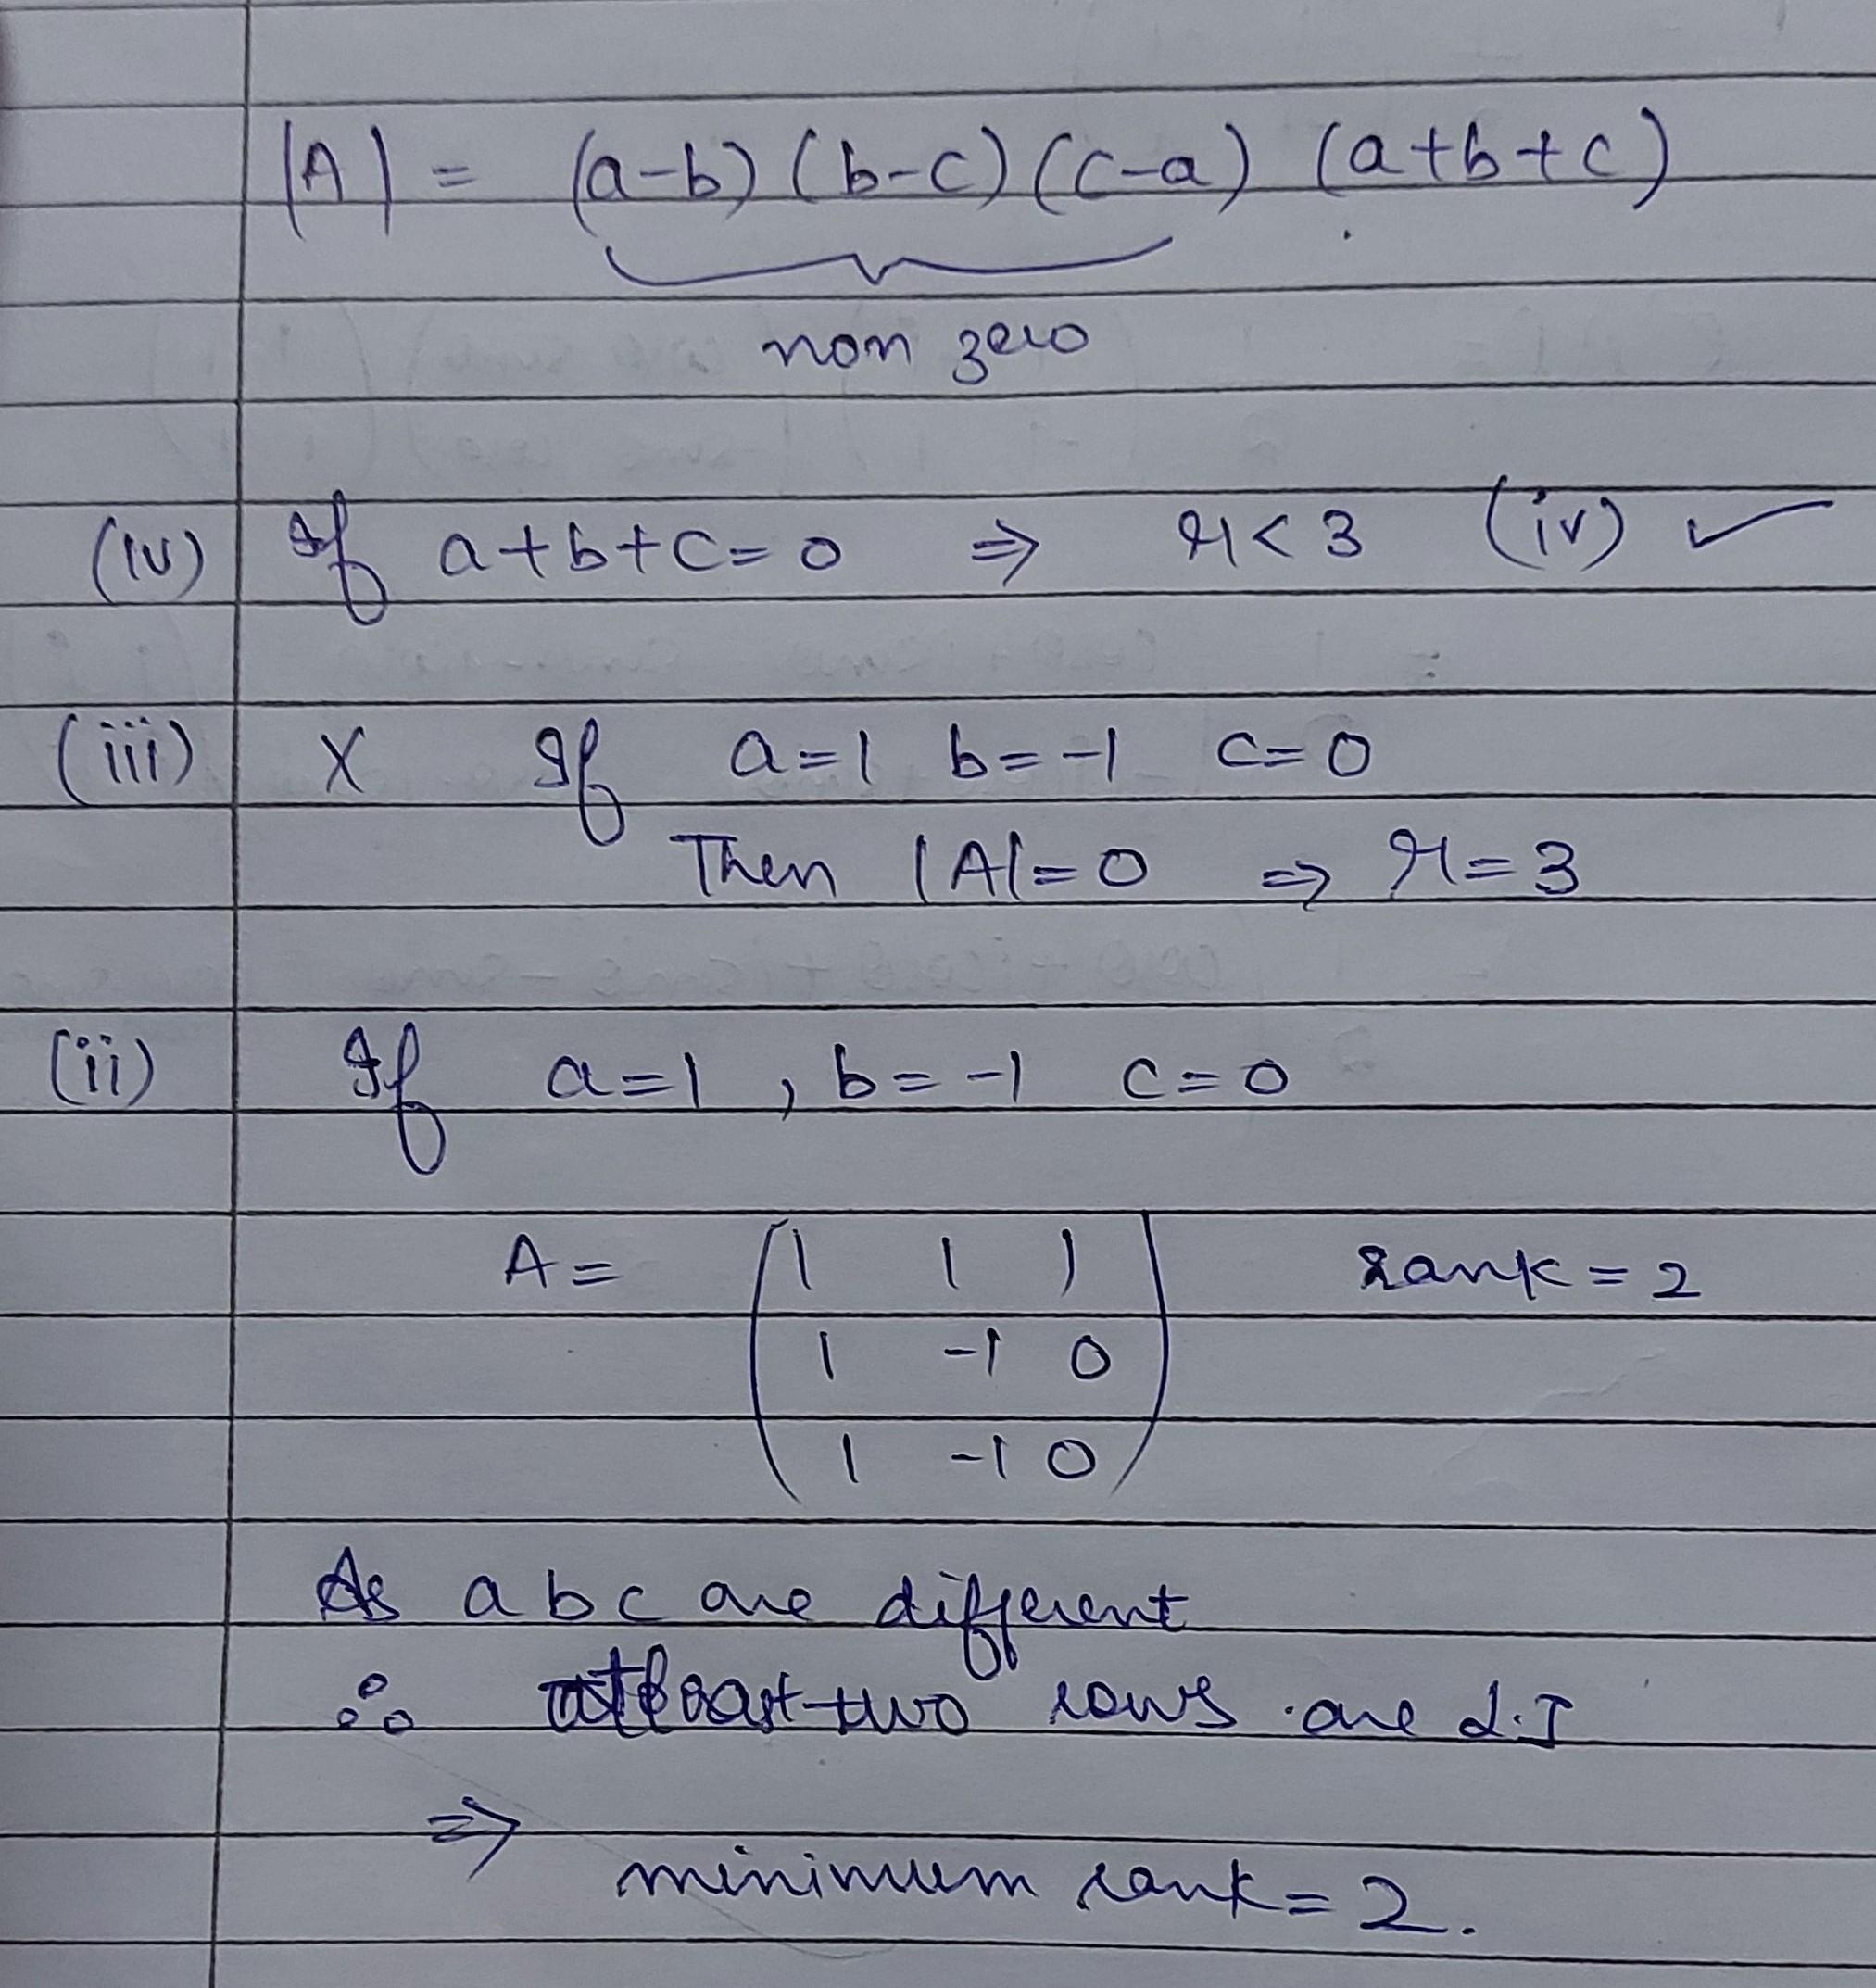 |A| = (a-b) (b-c) (c-a) (a+b+c)
non zero
(iv) If a+b+c=0 ⇒ r<3 (iv) ✓
(iii) X If a=1 b=-1 c=0
Then |A|=0 ⇒ r=3
(ii) If a=1 , b=-1 c=0
A= ( 1 1 1 ) rank=2
1 -1 0
1 -1 0
As a b c are different
∴ atleast two rows are L.I
⇒
minimum rank=2.